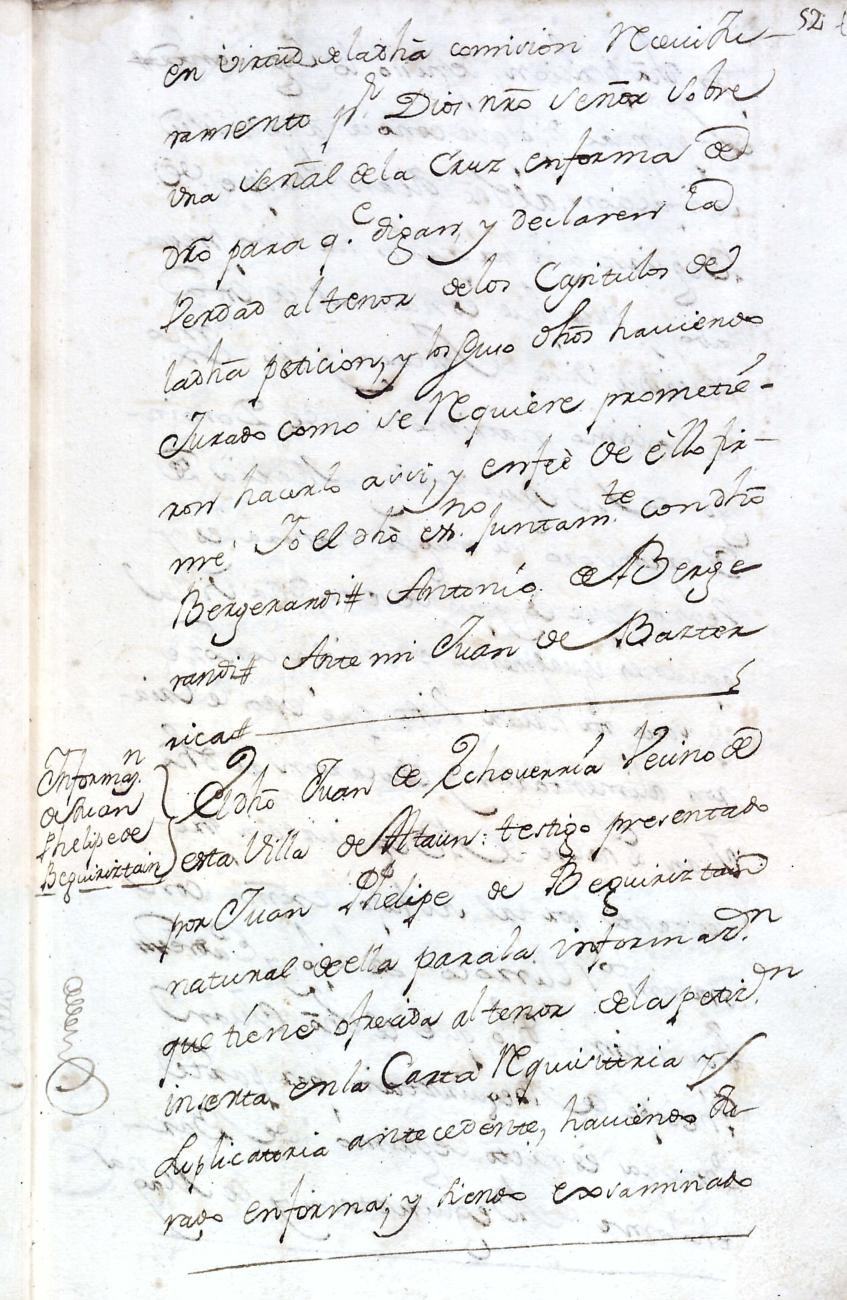 52
en virtud de la dha comision Receui Ju-
ramento pr. Dios nro señor sobre
una señal de la Cruz enforma de
dro para q.e digan, y declaren la
Verdad al tenor de los Capitulos de
la dha peticion, y los suso dhos haviendo
Jurado como se Requiere prometié-
ron hacerlo assi, y enfeè de èllo fir-
mè Yo el dho ess.no Juntam.te con dho
Bergerandi# Antonio de Berge
randi# Ante mi Juan de Barzer
rica#
Informaz.n
de Juan
Phelipe de
Beguiriztain
El dho Juan de Echeverria Vecino de
esta Villa de Ataun: testigo presentado
por Juan Phelipe de Beguiriztain
natural de ella para la informaz.on
que tiene ofrecida al tenor de la petiz.on
inserta en la Carta Requisitoria y
suplicatoria antecedente, haviendo Ju-
rado enforma, y siendo exsaminado